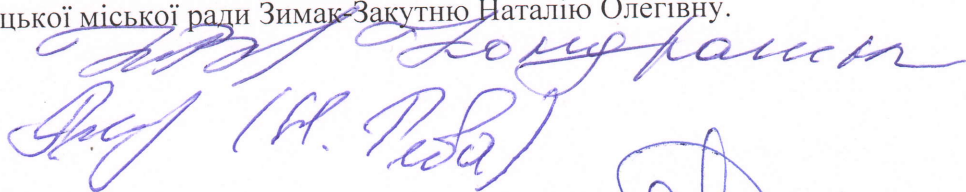 цької міської ради Зимак-Закутню Наталію Олегівну.
Кондрашин
(Н. Геба)